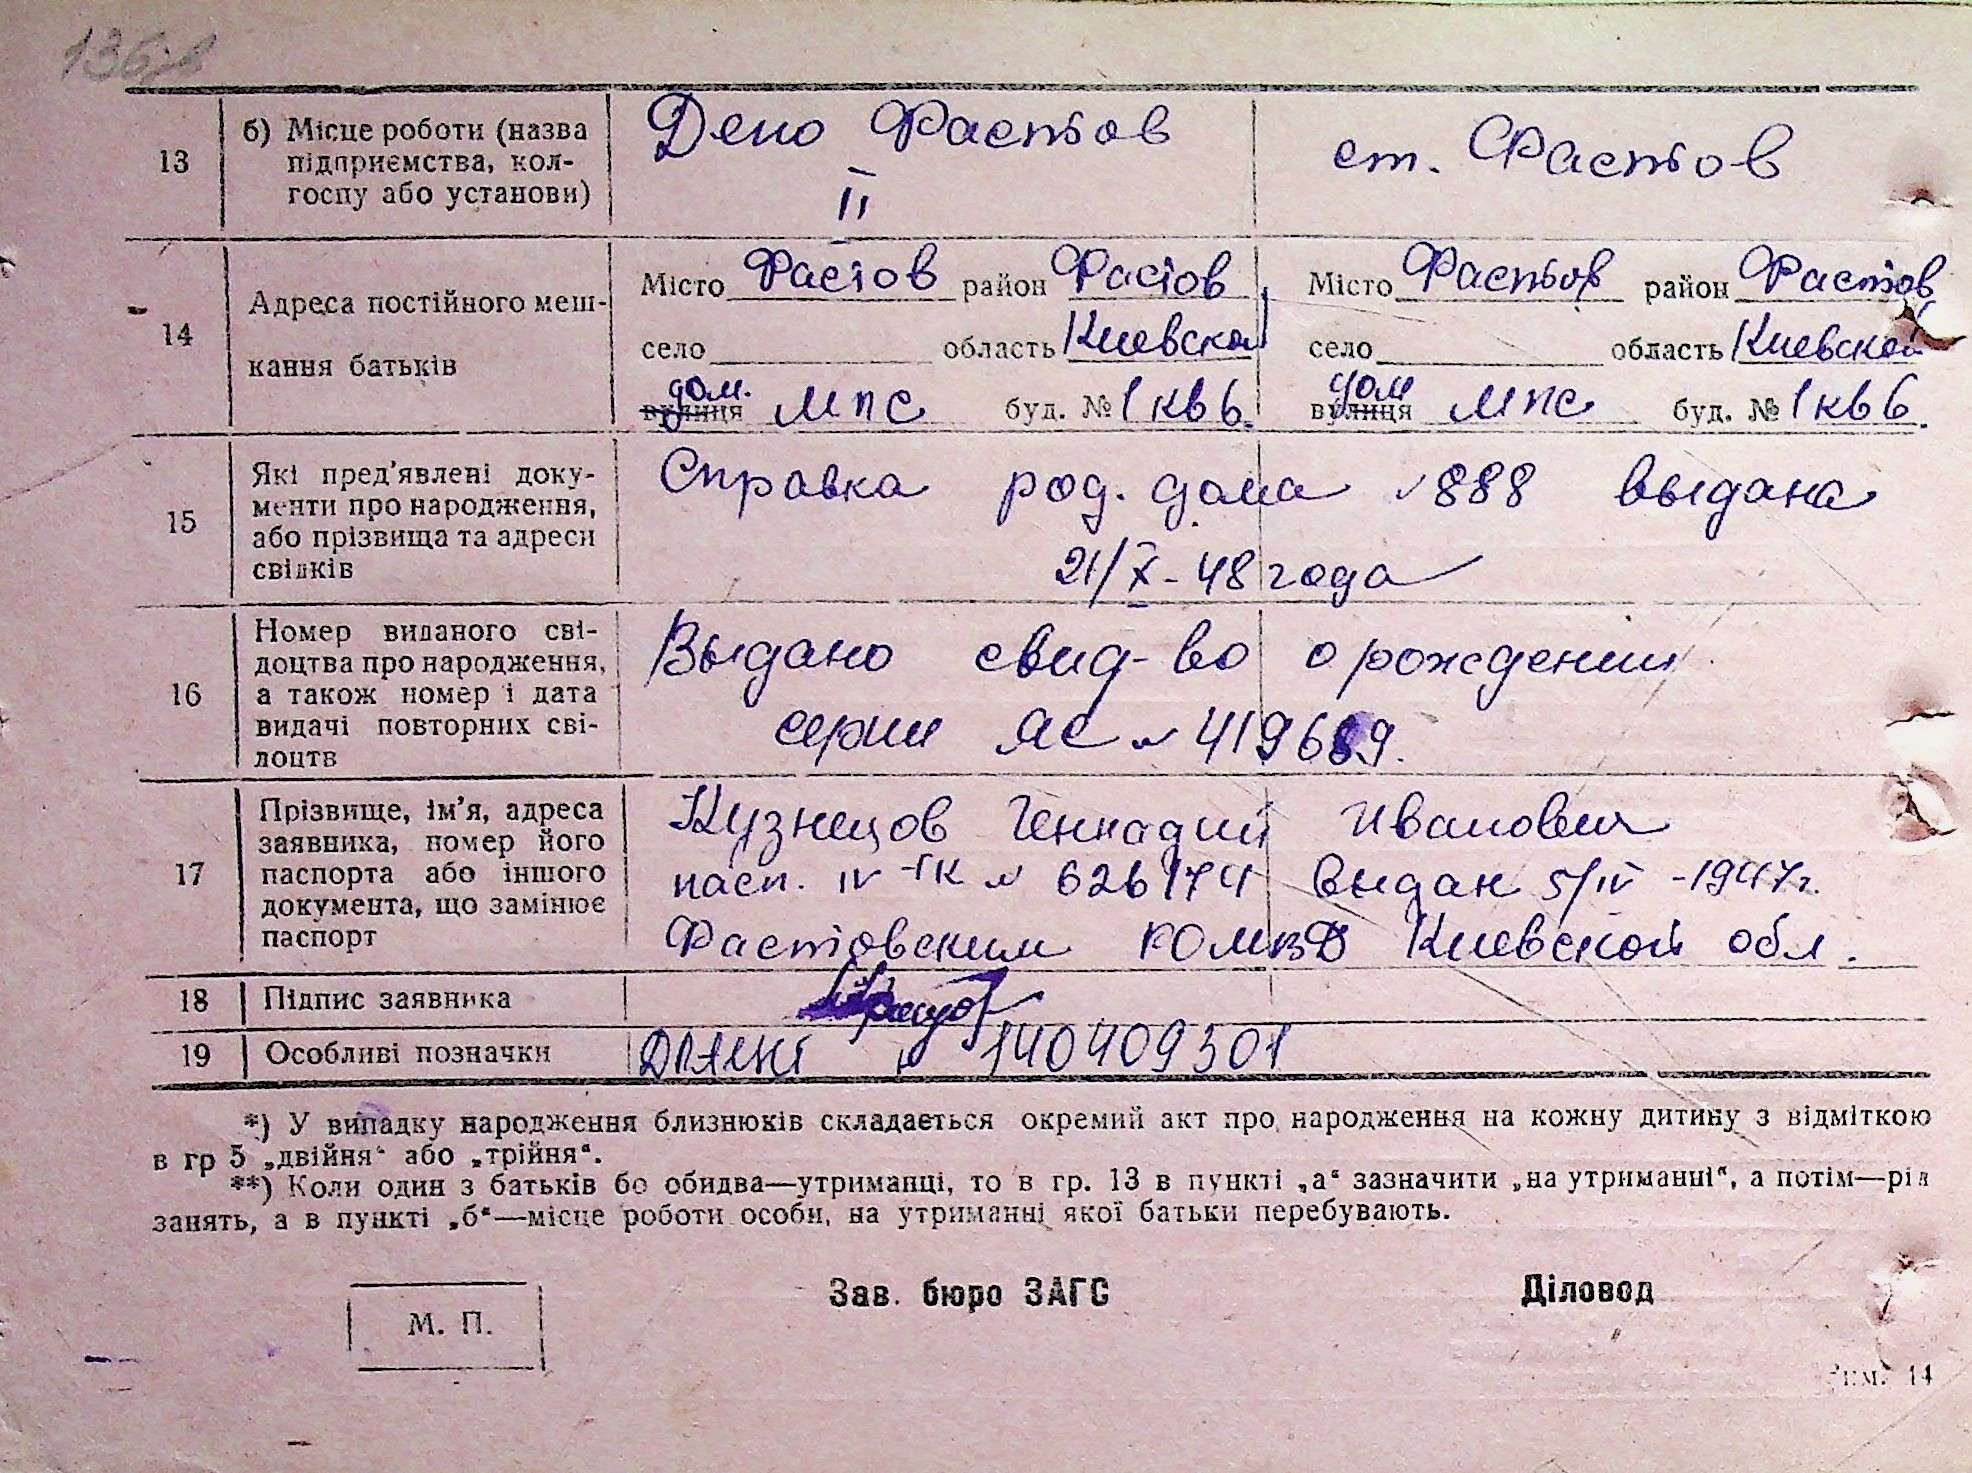 136
13 б) Місце роботи (назва підприємства, колгоспу або установи) Депо Фастов II ст. Фастов
14 Адреса постійного мешкання батьків
Місто Фастов район Фастов Місто Фастов район Фастов
село область Киевской село область Киевской
вулиця дом. МПС буд. № 1 кв 6. вулиця дом МПС буд. № 1 кв 6.
15 Які пред'явлені документи про народження, або прізвища та адреси свідків
Справка род. дома № 888 выдана
21/X - 48 года
16 Номер виданого свідоцтва про народження, а також номер і дата видачі повторних свідоцтв
Выдано свид-во о рождении
серии ЯС № 419689.
17 Прізвище, ім'я, адреса заявника, номер його паспорта або іншого документа, що замінює паспорт
Кузнецов Геннадий Иванович
насп. IV-ГК № 626174 выдан 5/IV - 1947 г.
Фастовским РОМВД Киевской обл.
18 Підпис заявника
19 Особливі позначки № 140409301
*) У випадку народження близнюків складається окремий акт про народження на кожну дитину з відміткою
в гр 5 „двійня“ або „трійня“.
**) Коли один з батьків бо обидва—утриманці, то в гр. 13 в пункті „а“ зазначити „на утриманні“, а потім—рід
занять, а в пункті „б“—місце роботи особи, на утриманні якої батьки перебувають.
Зав. бюро ЗАГС Діловод
М. П.
14